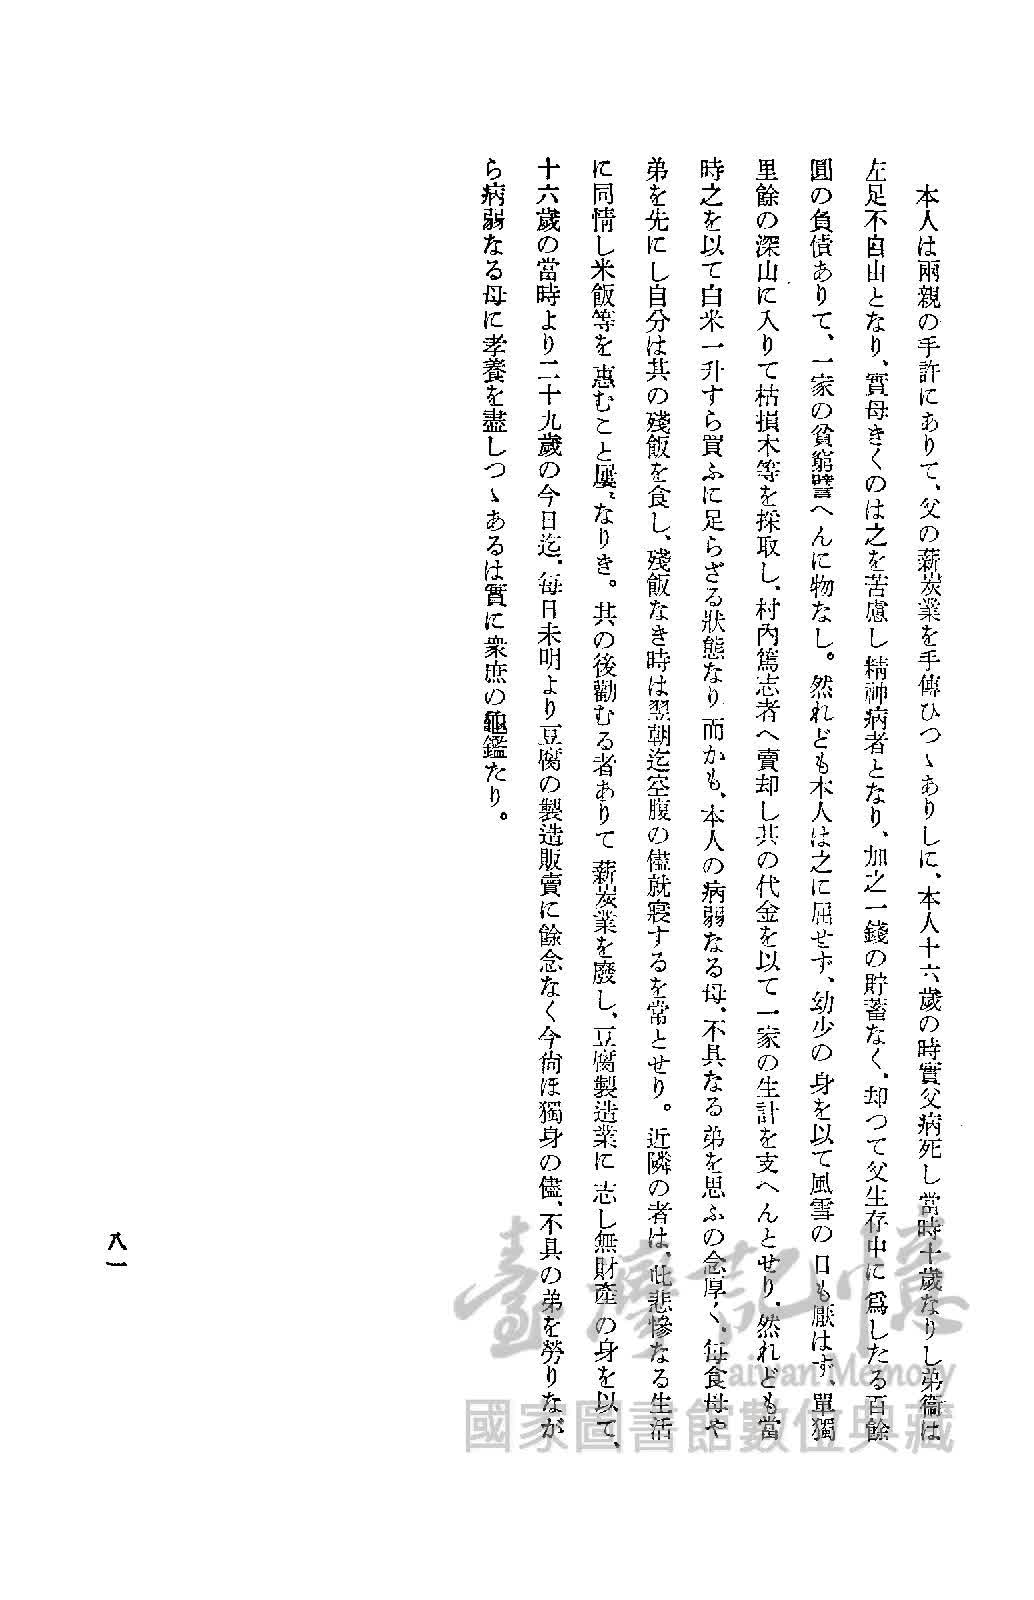 本人は兩親の手許にありて、父の薪炭業を手傳ひつゝありしに、本人十六歲の時實父病死し當時十歲なりし弟衞は
左足不自由となり、實母きくのは之を苦慮し精神病者となり、加之一錢の貯蓄なく、却つて父生存中に爲したる百餘
圓の負債ありて、一家の貧窮譬へんに物なし。然れども本人は之に屈せず、幼少の身を以て風雪の日も厭はず、單獨
里餘の深山に入りて枯損木等を採取し、村內篤志者へ賣却し其の代金を以て一家の生計を支へんとせり、然れども當
時之を以て白米一升すら買ふに足らざる狀態なり而かも、本人の病弱なる母、不具なる弟を思ふの念厚く、每食母や
弟を先にし自分は其の殘飯を食し、殘飯なき時は翌朝迄空腹の儘就寢するを常とせり。近隣の者は、此悲慘なる生活
に同情し米飯等を惠むこと屢〻なりき。其の後勸むる者ありて薪炭業を廢し、豆腐製造業に志し無財產の身を以て、
十六歲の當時より二十九歲の今日迄、每日未明より豆腐の製造販賣に餘念なく今尙ほ獨身の儘、不具の弟を勞りなが
ら病弱なる母に孝養を盡しつゝあるは實に衆庶の龜鑑たり。
八一
臺灣記憶
Taiwan Memory
國家圖書館數位典藏